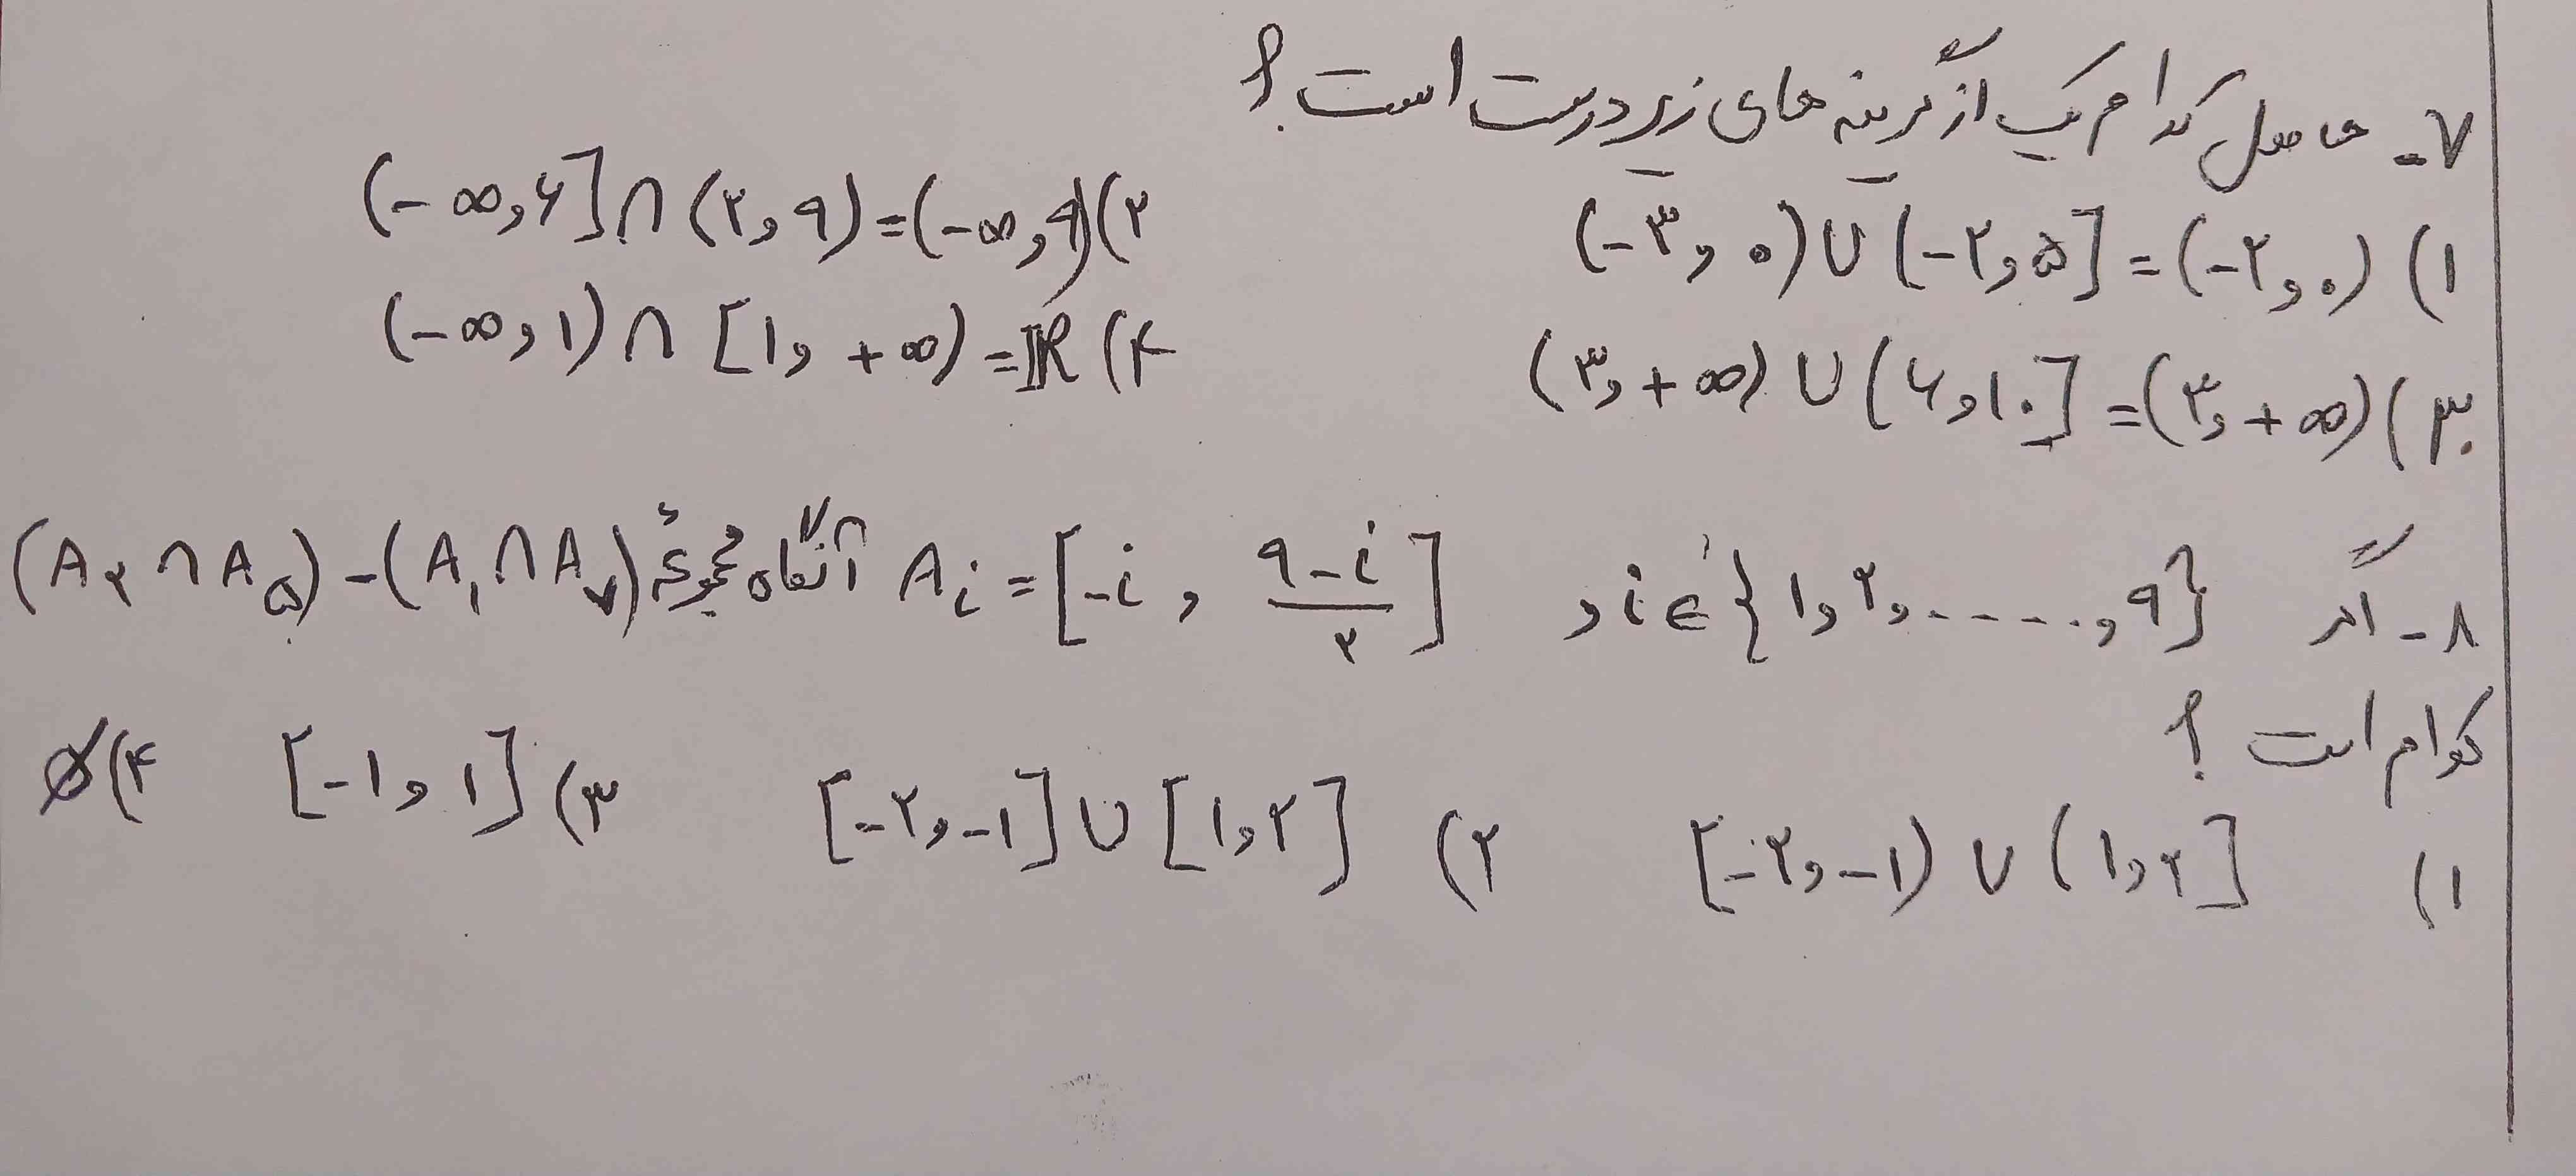 ۷- حاصل کدام یک از گزینه های زیر درست است؟
۱) (-۳, ۰) ∪ (-۲, ۵] = (-۲, ۰)
۲) (-∞, ۶] ∩ (۲, ۹) = (-∞, ۹)
۳) (۳, +∞) ∪ (۶, ۱۰] = (۳, +∞)
۴) (-∞, ۱) ∩ [۱, +∞) = ℝ
۸- اگر i ∈ {۱, ۲, ....., ۹} و A_i = [-i, (۹-i)/۲] آنگاه مجموعهٔ (A_۲ ∩ A_۵) - (A_۱ ∩ A_۷)
کدام است؟
۱) [-۲, -۱) ∪ (۱, ۲] ۲) [-۲, -۱] ∪ [۱, ۲] ۳) [-۱, ۱] ۴) ∅